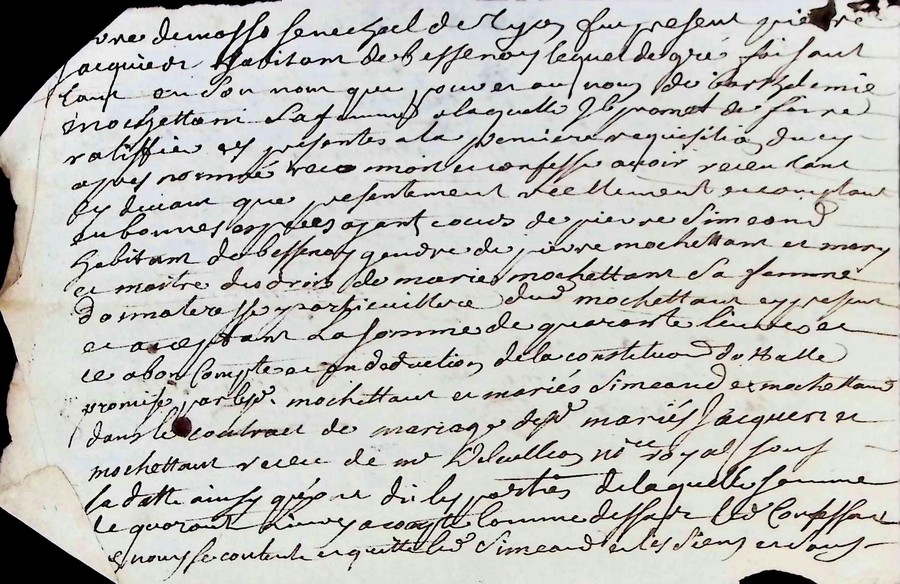 senechal de Lyon fut present pierre
jacquier habitant de bessenay lequel de gré faisant
tant en son nom que pour et au nom de barthelemie
mochettant sa femme a laquelle Il promet de faire
ratiffier ces presentes a la premiere requisition du cy
apres nommé reconnoit et confesse avoir receu tant
cy devant que presentement reellement et comptant
en bonnes especes ayant cours de pierre Simeand
habitant de bessenay gendre de pierre mochettant et mary
et maitre des droits de marie mochettant Sa femme
mochettant cy present
et acceptant La somme de quarante livres et
ce a bon Compte et en deduction de la constitution dottalle
promise par lesd. mochettant et mariés Simeand et mochettand
dans le contrat de mariage desd. mariés Jacquier et
mochettant receu de me no.re royal sous
sa datte ainsy que ont dit les parties de laquelle somme
de quarante Livres comme dessus led. Confessant
Se contente et quitte led. Simeand et les Siens et